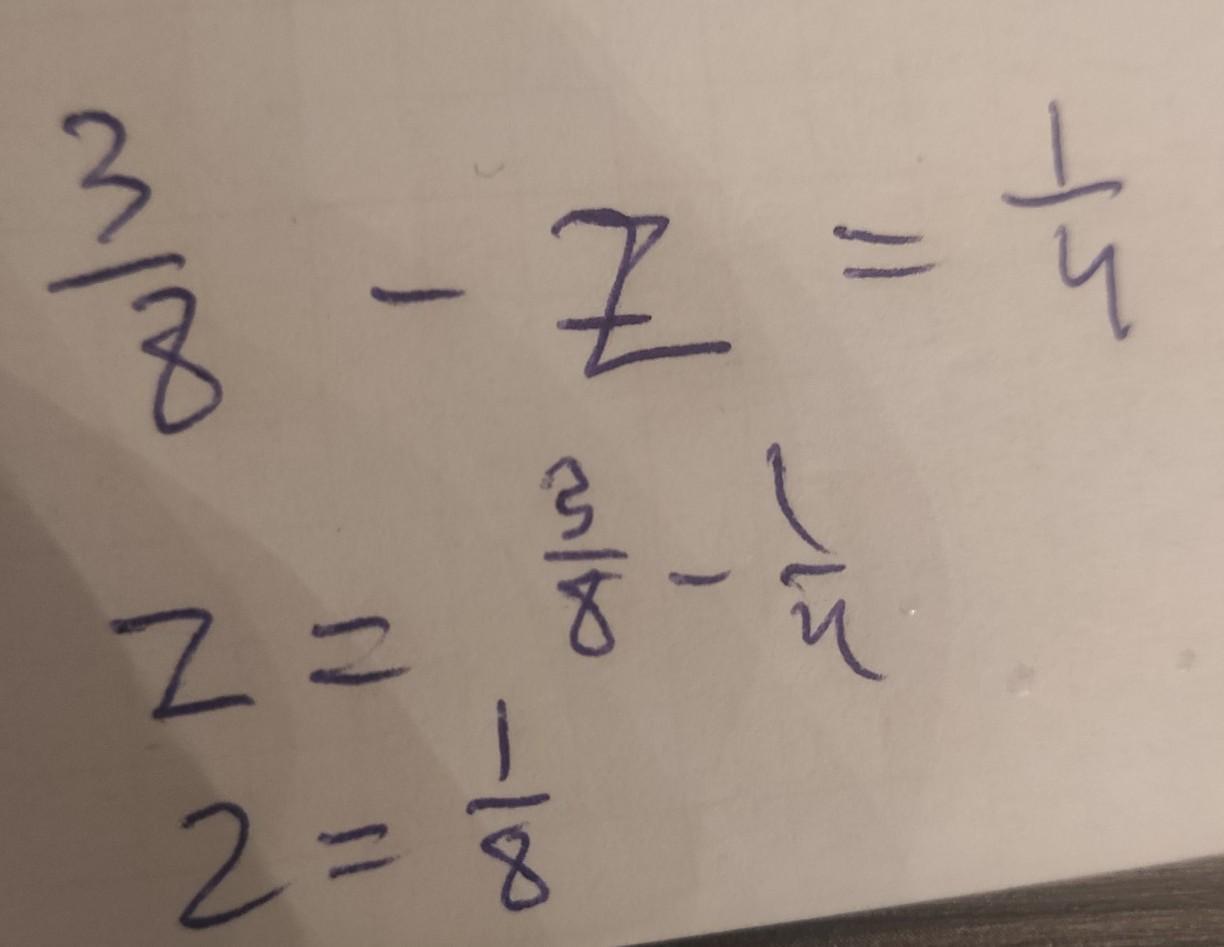 3/8 - Z = 1/4
Z = 3/8 - 1/4
Z = 1/8